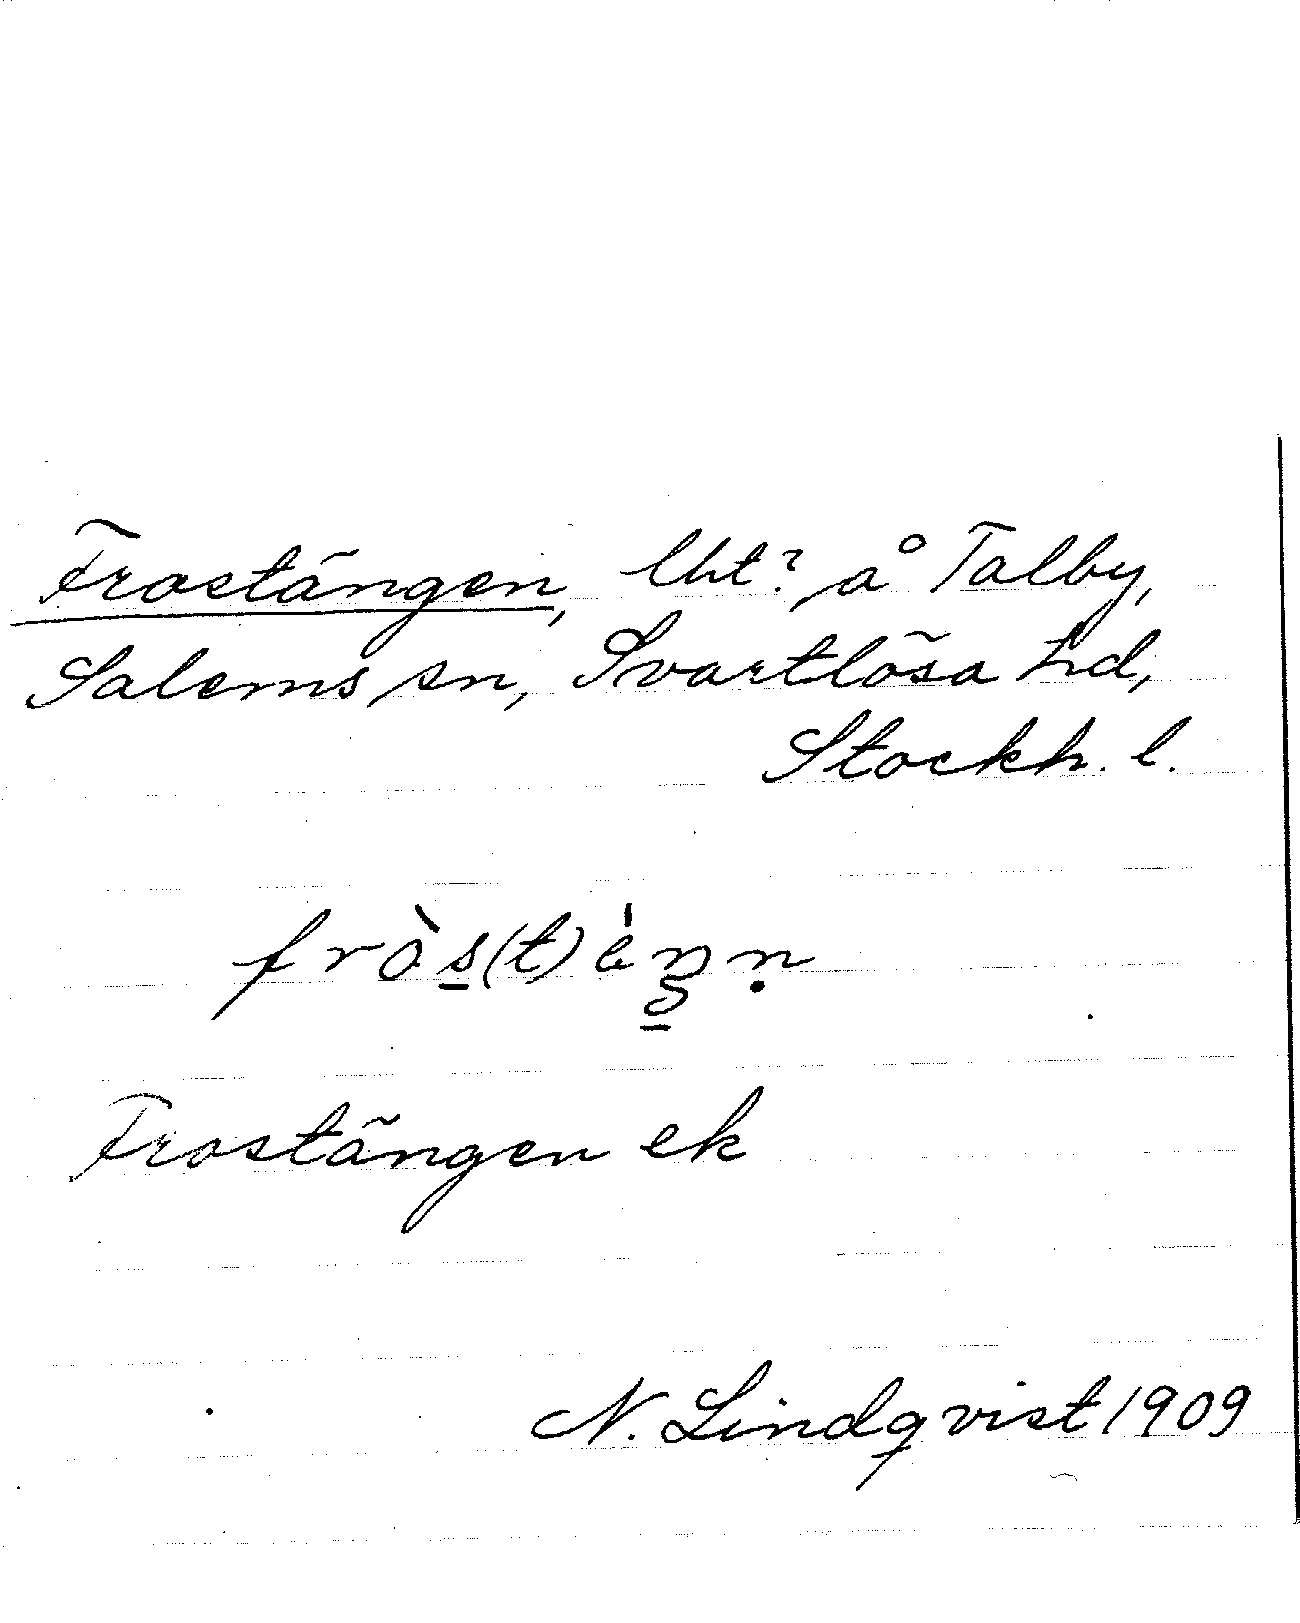 Frostängen, lht?, å Talby,
Salems sn, Svartlösa hd,
Stockh. l.
fròs(t)èŋṇ
Frostängen ek
N. Lindqvist 1909